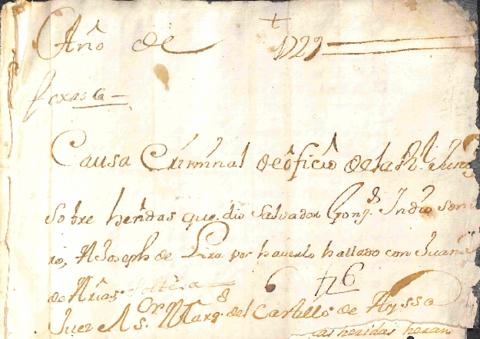 Año de 1729
Causa Criminal de oficio de la Rl Justª
Sobre heridas que dio Salvador Gonzs Indio
rio, A Joseph de Lira por haverlo hallado con Juana
de Arias soltera 6 f 26
Juez El Sr Marqs del Castillo de Ayssa
las heridas